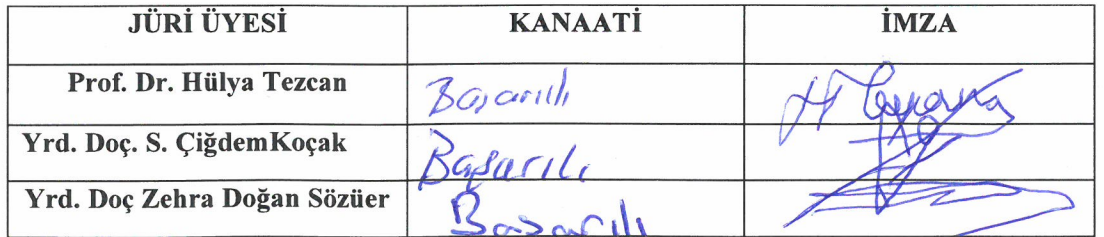 JÜRİ ÜYESİ KANAATİ İMZA
Prof. Dr. Hülya Tezcan Başarılı
Yrd. Doç. S. ÇiğdemKoçak Başarılı
Yrd. Doç Zehra Doğan Sözüer Başarılı